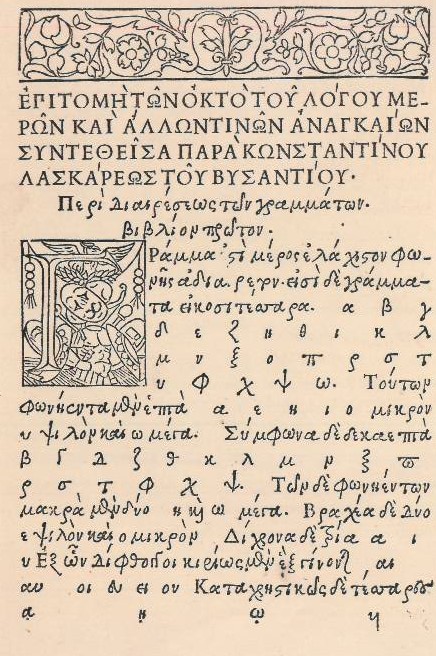 ἘΠΙΤΟΜῊ ΤΩ͂Ν ὈΚΤῸ ΤΟΥ͂ ΛΌΓΟΥ ΜΕ-
ΡΩ͂Ν ΚΑῚ ἌΛΛΩΝ ΤΙΝΩ͂Ν ἈΝΑΓΚΑΊΩΝ
ΣΥΝΤΕΘΕΙ͂ΣΑ ΠΑΡᾺ ΚΩΝΣΤΑΝΤΊΝΟΥ
ΛΑΣΚΆΡΕΩΣ ΤΟΥ͂ ΒΥΣΑΝΤΊΟΥ.
Περὶ Διαιρέσεως τῶν γραμμάτων.
βιβλίον πρῶτον.
Γράμμα ἐστὶ μέρος ἐλάχιστον φω-
νῆς ἀδιαίρετον. εἰσὶ δὲ γράμμα-
τα εἰκοσιτέσσαρα. α β γ
δ ε ζ η θ ι κ λ
μ ν ξ ο π ρ σ τ
υ φ χ ψ ω. Τούτων
φωνήεντα μὲν ἑπτὰ α ε η ι ο μικρὸν
υ ψιλὸν καὶ ω μέγα. Σύμφωνα δὲ δεκαεπτὰ
β γ δ ζ θ κ λ μ ν ξ π
ρ σ τ φ χ ψ. Τῶν δὲ φωνηέντων
μακρὰ μὲν δύο η καὶ ω μέγα. Βραχέα δὲ δύο
ε ψιλὸν καὶ ο μικρὸν Δίχρονα δὲ τρία α ι
υ Ἐξ ὧν δίφθογγοι κυρίως μὲν ἓξ γίνονται αι
αυ οι ει ευ ου Καταχρηστικῶς δὲ τέσσαρες
ᾳ ῃ ῳ υι